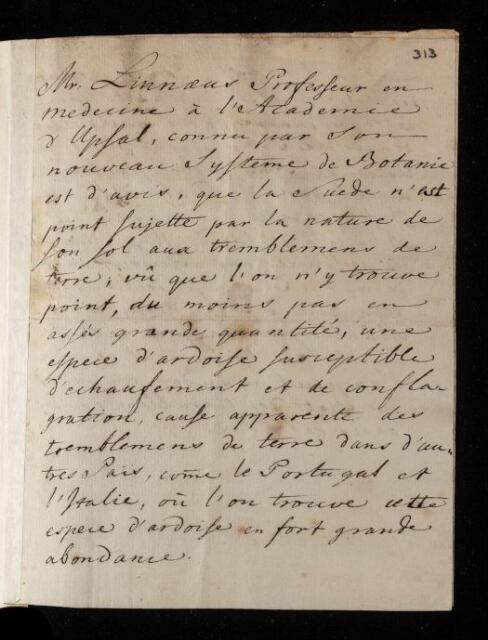 313
Mr. Linnæus Professeur en
medecine à l'Academie
d'Upsal, connu par son
nouveau Systeme de Botanic
est d'avis, que la Suede n'est
point sujette par la nature de
son sol aux tremblemens de
terre, vû que l'on n'y trouve
point, du moins pas en
assés grande quantité, une
espece d'ardoise susceptible
d'echaufement et de confla-
gration, cause apparente des
tremblemens de terre dans d'au-
tres Païs, come le Portugal et
l'Italie, où l'on trouve cette
espece d'ardoise en fort grande
abondance.